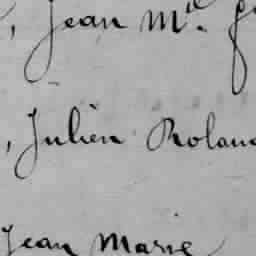 , Jean Mle
, Julien Roland
Jean Marie